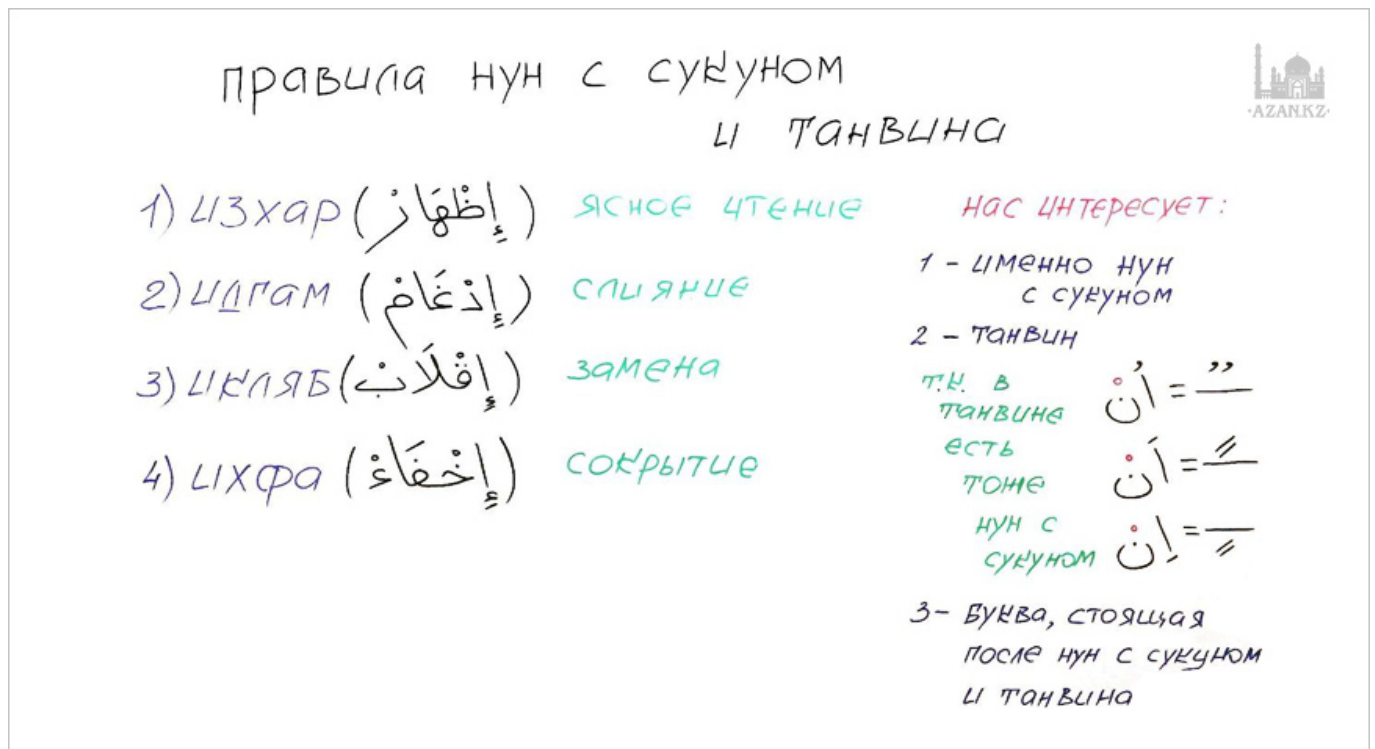 правила нун с сукуном
и танвина
·AZAN.KZ·
1) изхар (إِظْهَارْ) ясное чтение
2) идгам (إِدْغَامْ) слияние
3) икляб (إِقْلَابْ) замена
4) ихфа (إِخْفَاءْ) сокрытие
нас интересует:
1 - именно нун
с сукуном
2 - танвин
т.к. в
танвине
есть
тоже
нун с
сукуном
اُنْ = ــٌـ
اَنْ = ــًـ
اِنْ = ــٍـ
3 - буква, стоящая
после нун с сукуном
и танвина